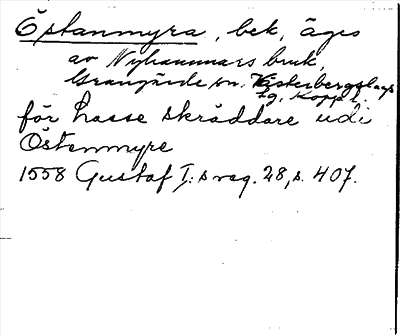 Östanmyra, bek, äges
av Nyhammars bruk,
Grangärde sn. Västerbergslags
tg, Koppl.
för Lasse skräddare udi
Östenmyre
1558 Gustaf I:s reg. 28, s. 407.